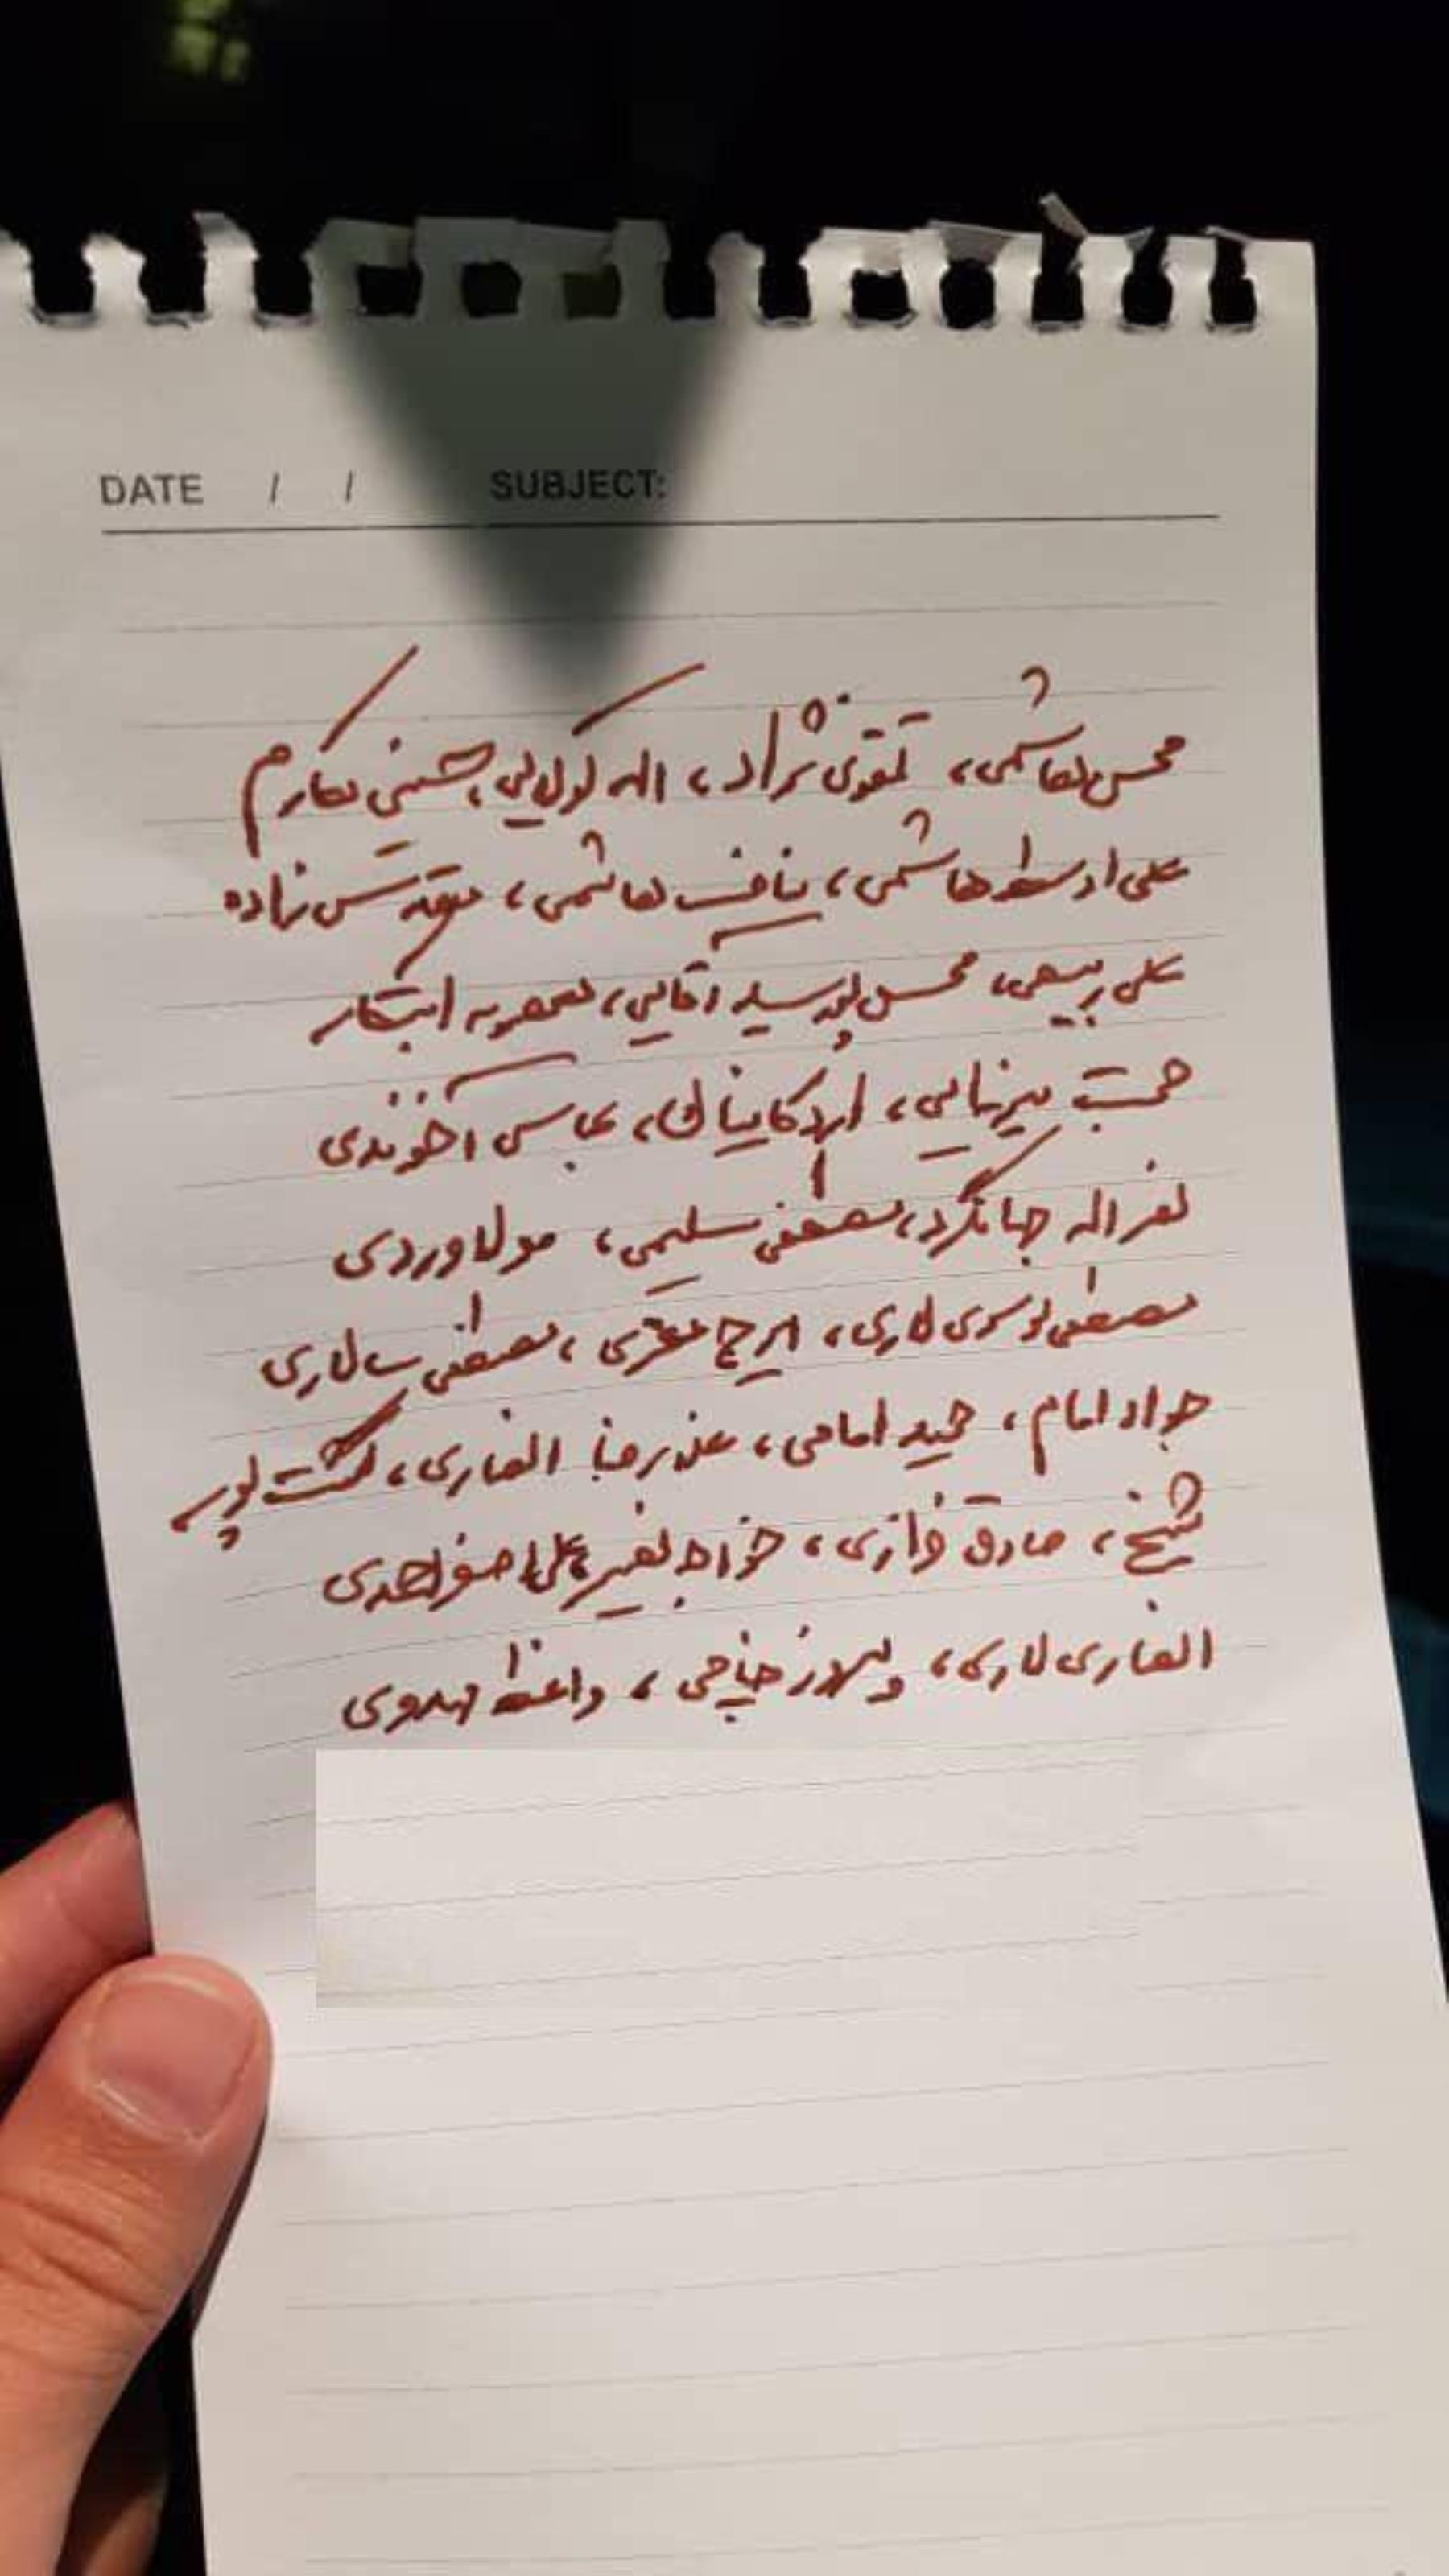 DATE / / SUBJECT:
محسن هاشمی، تقوی نژاد، اله کولایی، حسینی مکارم
علی اوسط هاشمی، هاشمی، مقدس زاده
علی ربیعی، محسن پورسید آقایی، معصومه ابتکار
حجت میرزایی، اردکانیان، عباس آخوندی
نصراله جهانگرد، مصطفی سلیمی، مولاوردی
مصطفی موسوی لاری، ایرج معزی، مصطفی سالاری
جواد امام، حمید امامی، علیرضا انصاری، گشت پور
شیخ، صادق خرازی، خواجه نصیر، علی اصغر احمدی
انصاری لاری، پیروز حناچی، واعظ مهدوی